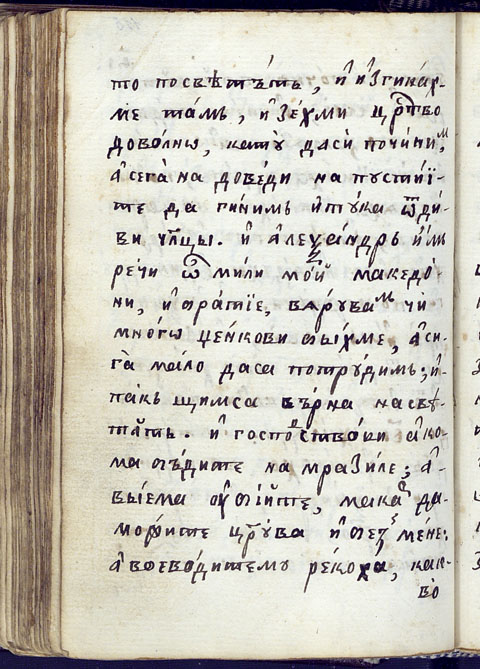 то посвѣтътъ, и҆ и҆згинах-
ме тамъ, и҆ зехми црⷭ҇тво
доволнѡ, като даси почини́ᵐ,
а҆ сега̀ на доведи на пꙋсти́ї-
те да ги́нимъ и҆ тꙋка ѿ ди́-
ви чл҃цы. и҆ а҆леѯа́ндръ и҆мъ
речи ѽ мили мои҆ македо́-
ни, и҆ братїе, ва́рꙋваᵐ чи
многѡ цє́нкови быхме, а҆ си-
га̀ ма́ло даса потрꙋдимъ; и҆
пакъ щимса вѣрна на свѣ-
тътъ. и҆ господство́ви а҆ко-
ма бъдите на мра́зиле; а҆-
выема ᲂу҆бі́йте, мака да-
можите црꙋ́ва и҆ безʼ ме́не:
а҆ воево́дитемꙋ реко́ха, как-
во